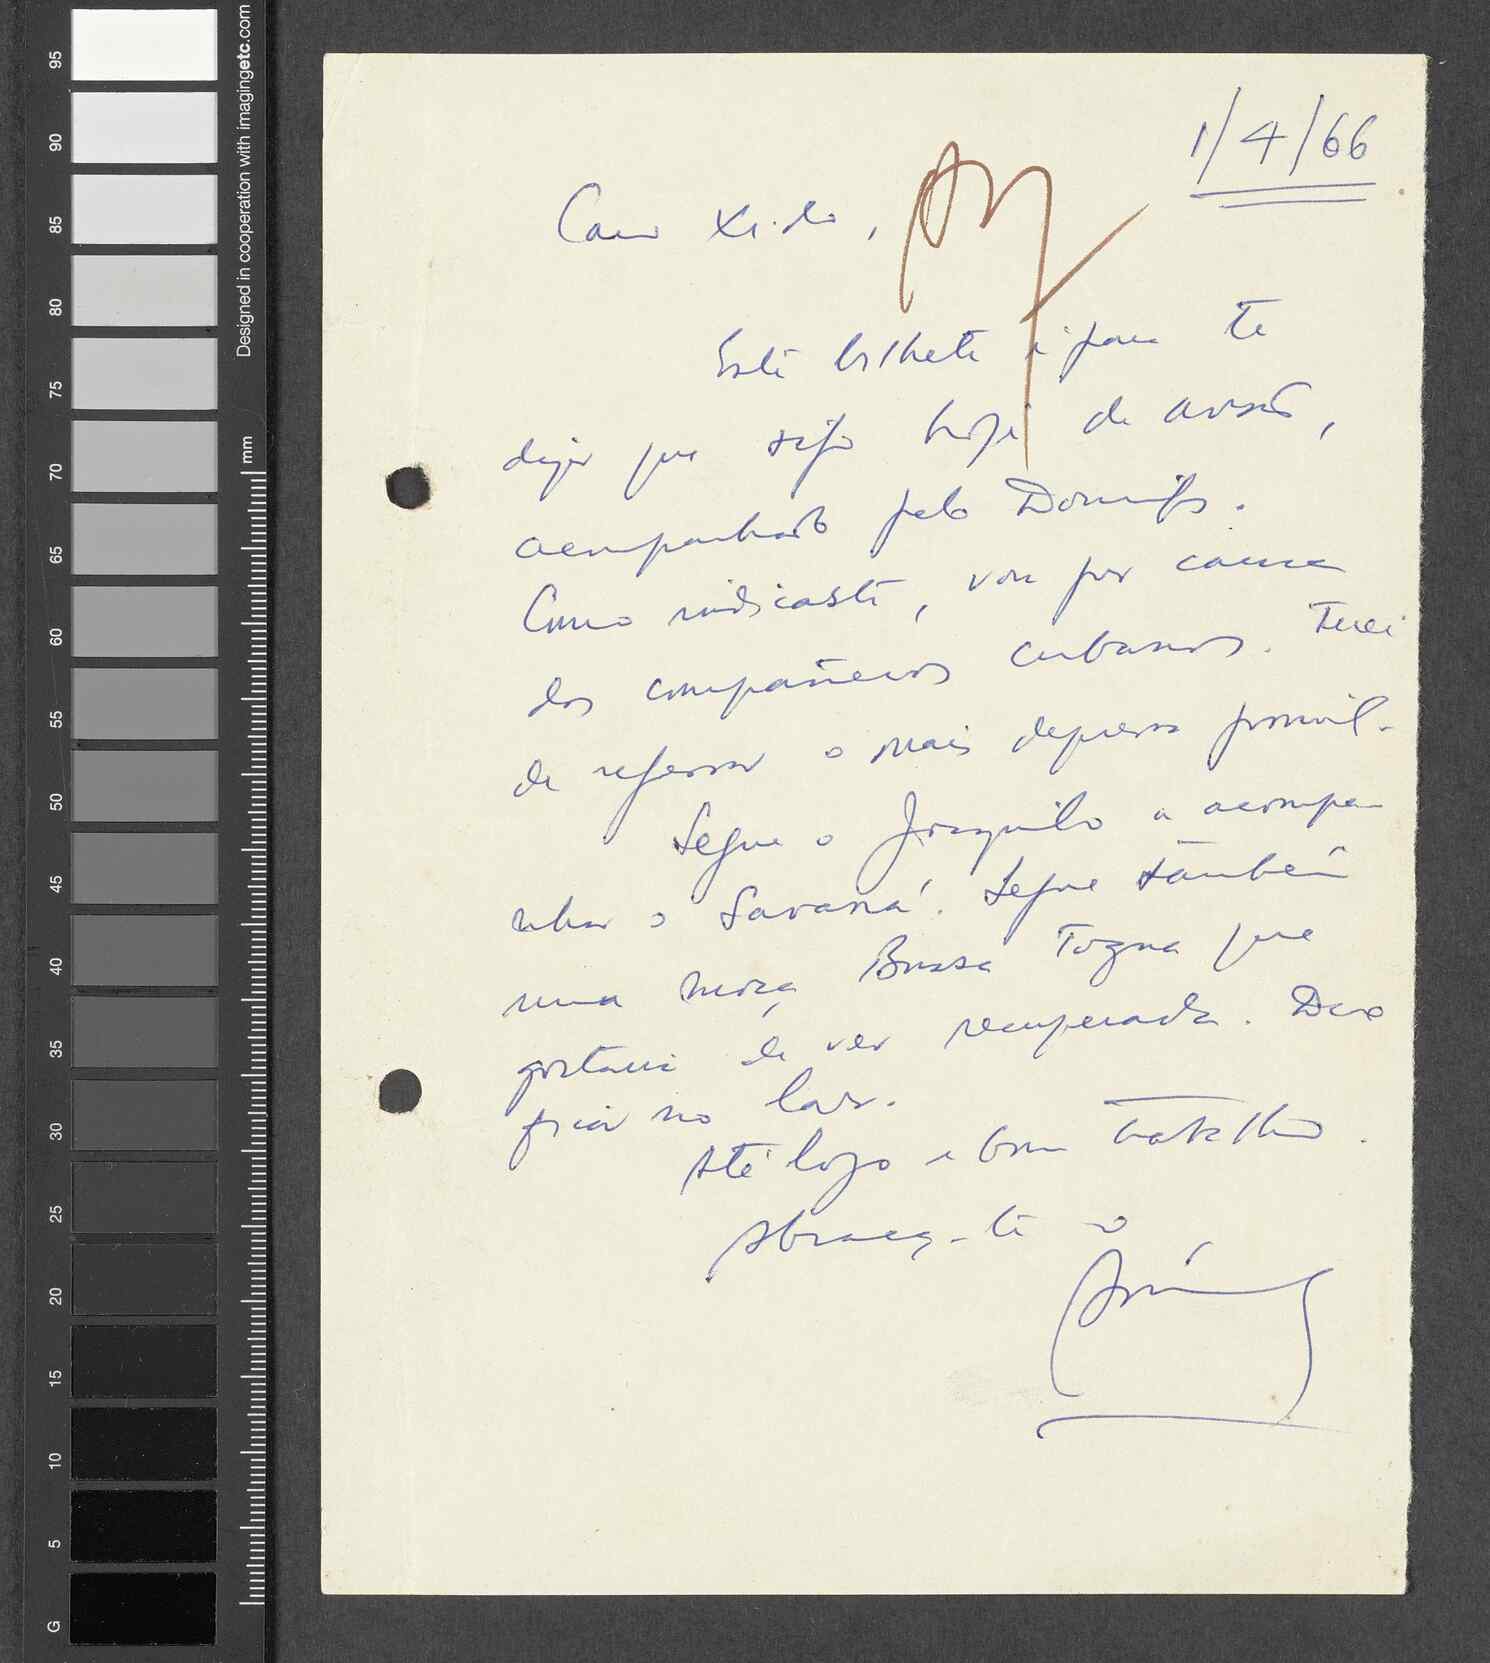 1/4/66
Caro Xido,
Este bilhete é para te
dizer que sigo hoje de avião,
acompanhado pelo Domingos.
Como indicaste, vou por causa
dos compañeros cubanos. Terei
de regressar o mais depressa possível.
Segue o Joaquim a acompa-
nhar o Savaná. Segue também
uma moça que
gostaria de ver recuperada. Deve
ficar no Lar.
Até logo e bom trabalho.
Abraça-te o
95
90
85
80
75
70
65
60
55
50
45
40
35
30
25
20
15
10
5
G
Designed in cooperation with imagingetc.com
mm